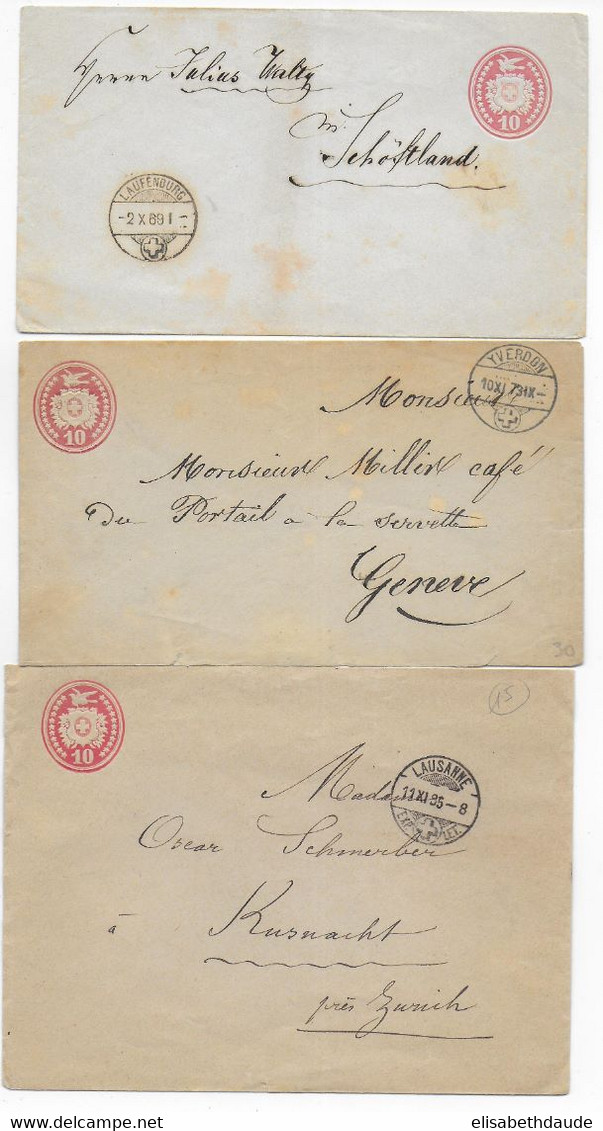 Herrn Julius Wälty
in
Schöftland.
10
LAUFENBURG
-2 X 69 I
10
YVERDON
10 XI 73 IX
Monsieur
Monsieux Millix café
du Portail a la servette
Geneve
30
10
15
LAUSANNE
11 XI 95-8
EXP. LET.
Madame
Oscar Schmerber
à Kusnacht
près Zurich
elisabethdaude